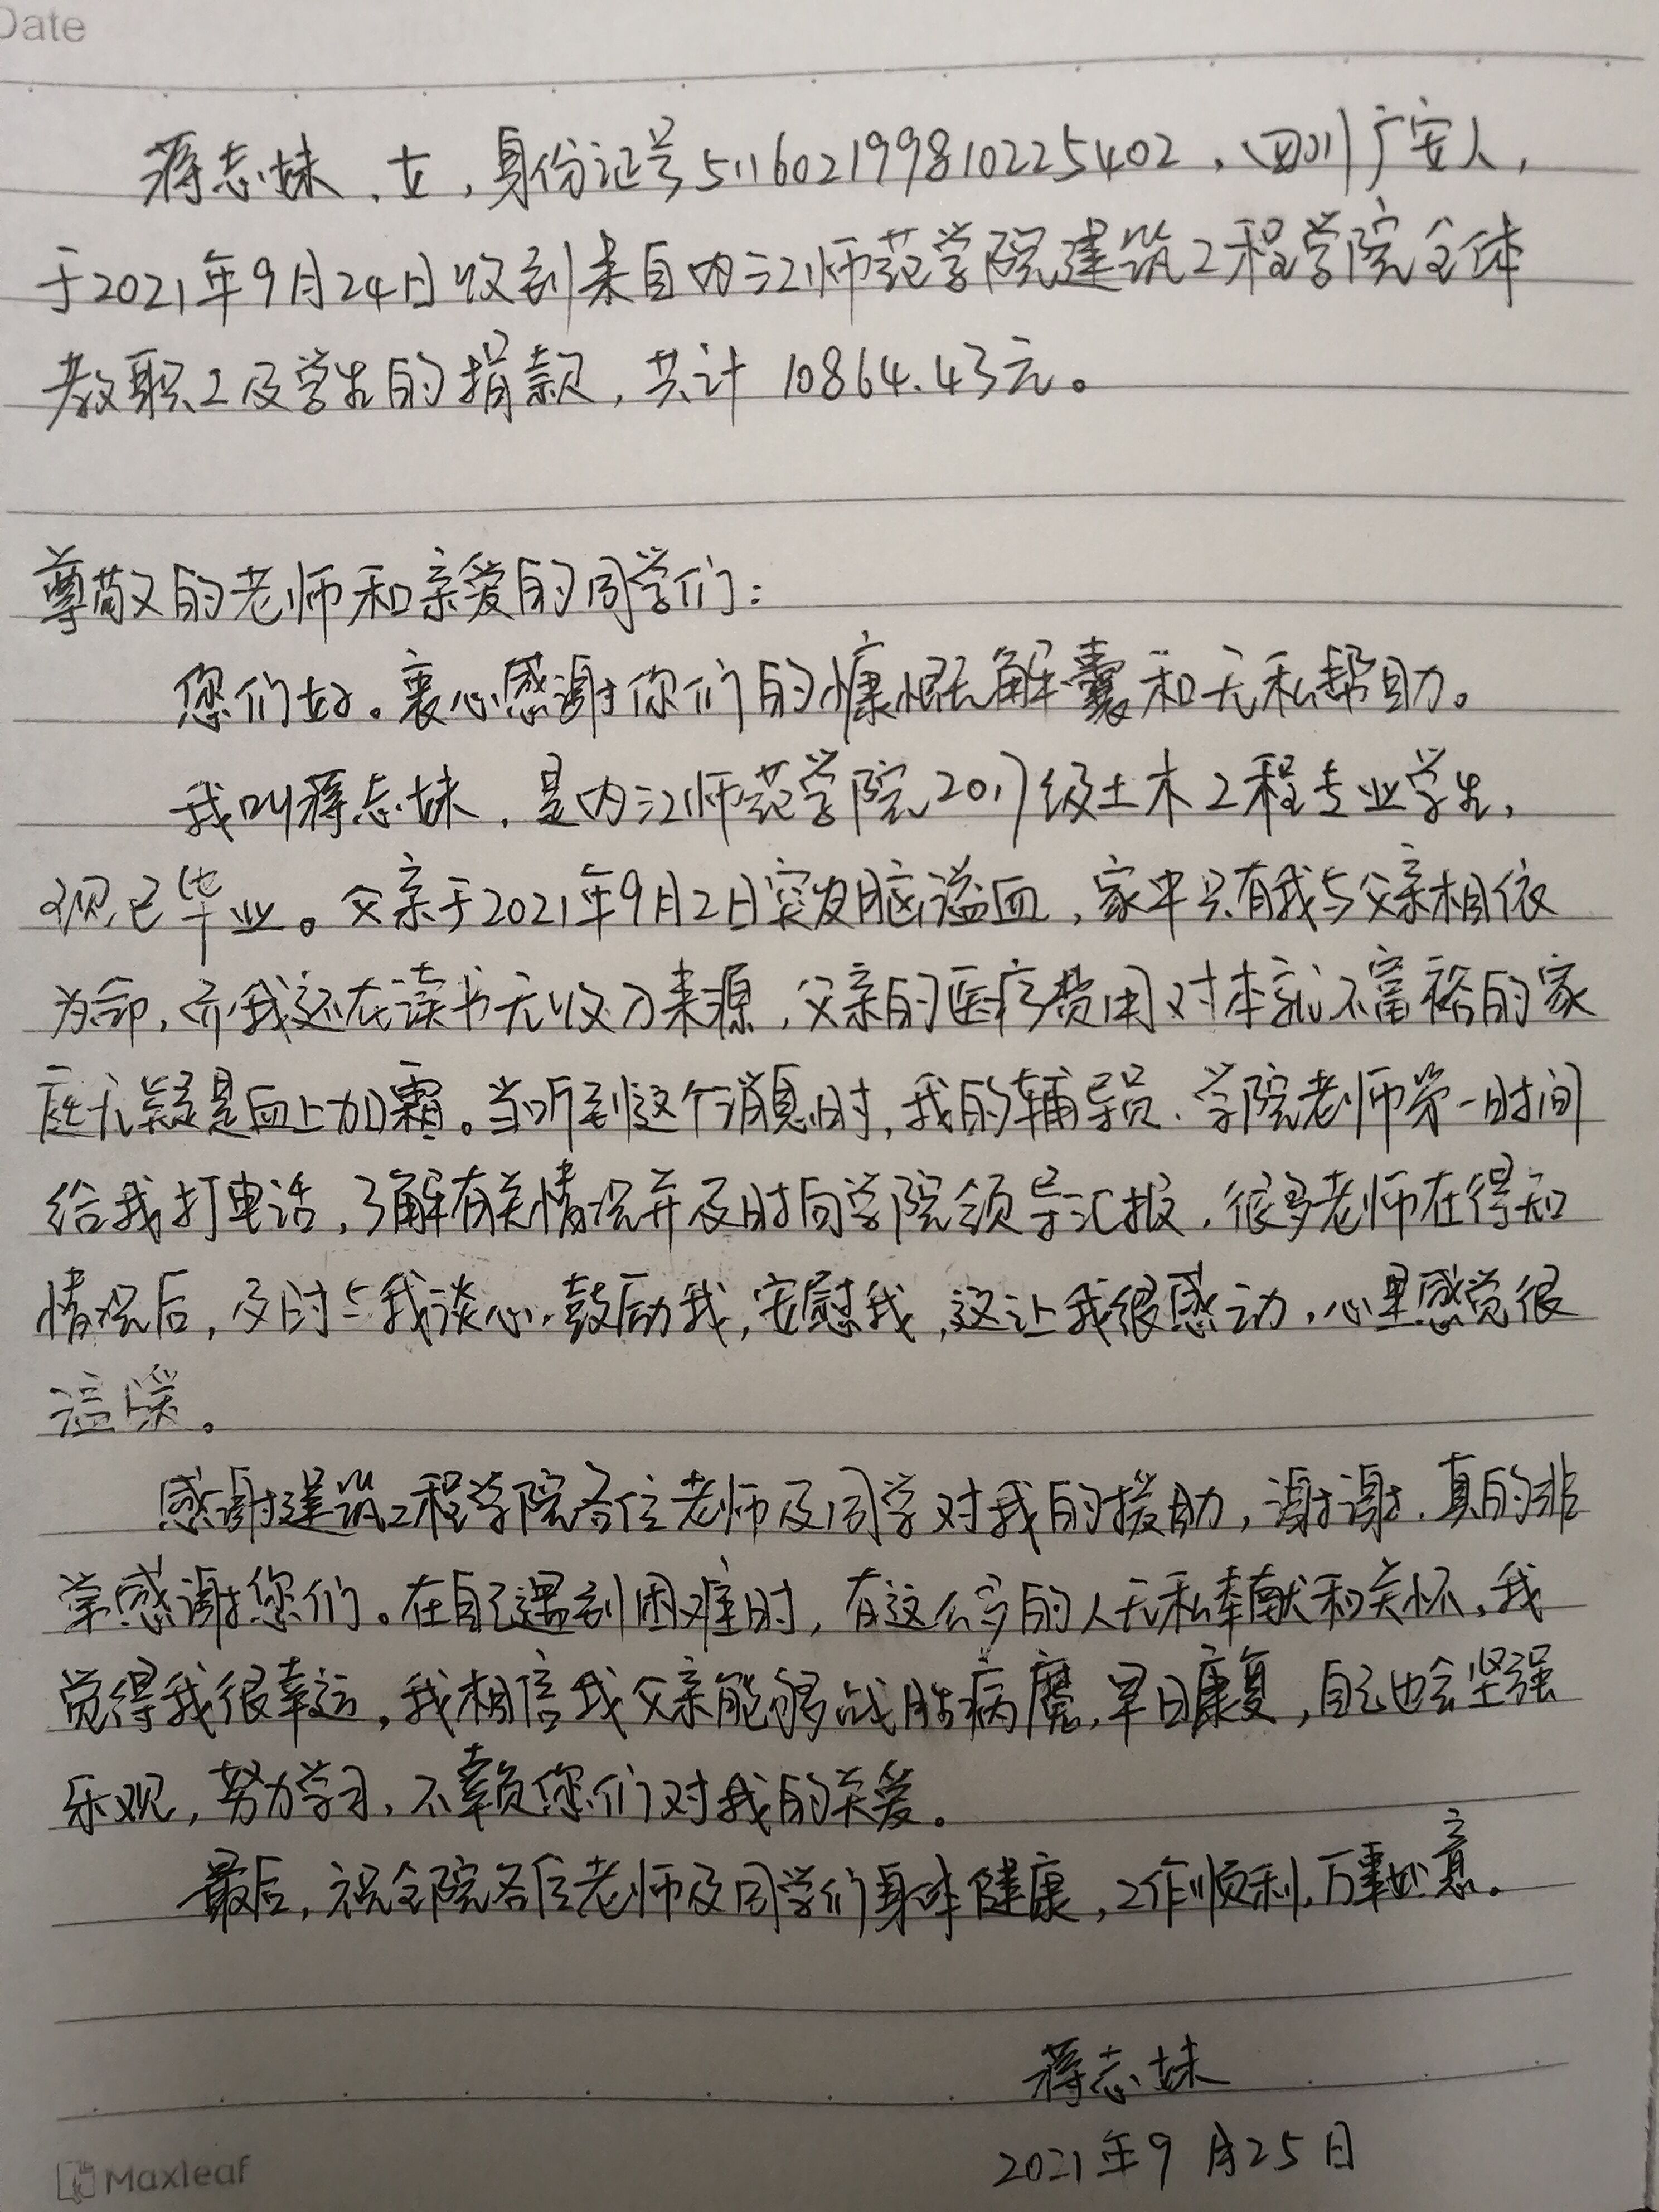 Date
蒋志妹，女，身份证号511602199810225402，四川广安人，
于2021年9月24日收到来自内江师范学院建筑工程学院全体
教职工及学生的捐款，共计10864.43元。
尊敬的老师和亲爱的同学们：
您们好。衷心感谢你们的慷慨解囊和无私帮助。
我叫蒋志妹，是内江师范学院2017级土木工程专业学生，
现已毕业。父亲于2021年9月2日突发脑溢血，家中只有我与父亲相依
为命，而我还在读书无收入来源，父亲的医疗费用对本就不富裕的家
庭无疑是血上加霜。当听到这个消息时，我的辅导员、学院老师第一时间
给我打电话，了解有关情况并及时向学院领导汇报，很多老师在得知
情况后，及时与我谈心，鼓励我，安慰我，这让我很感动，心里感觉很
温暖。
感谢建筑工程学院各位老师及同学对我的援助，谢谢，真的非
常感谢您们。在自己遇到困难时，有这么多的人无私奉献和关怀，我
觉得我很幸运，我相信我父亲能够战胜病魔，早日康复，自己也会坚强
乐观，努力学习，不辜负您们对我的关爱。
最后，祝全院各位老师及同学们身体健康，工作顺利，万事如意。
蒋志妹
2021年9月25日
Maxleaf